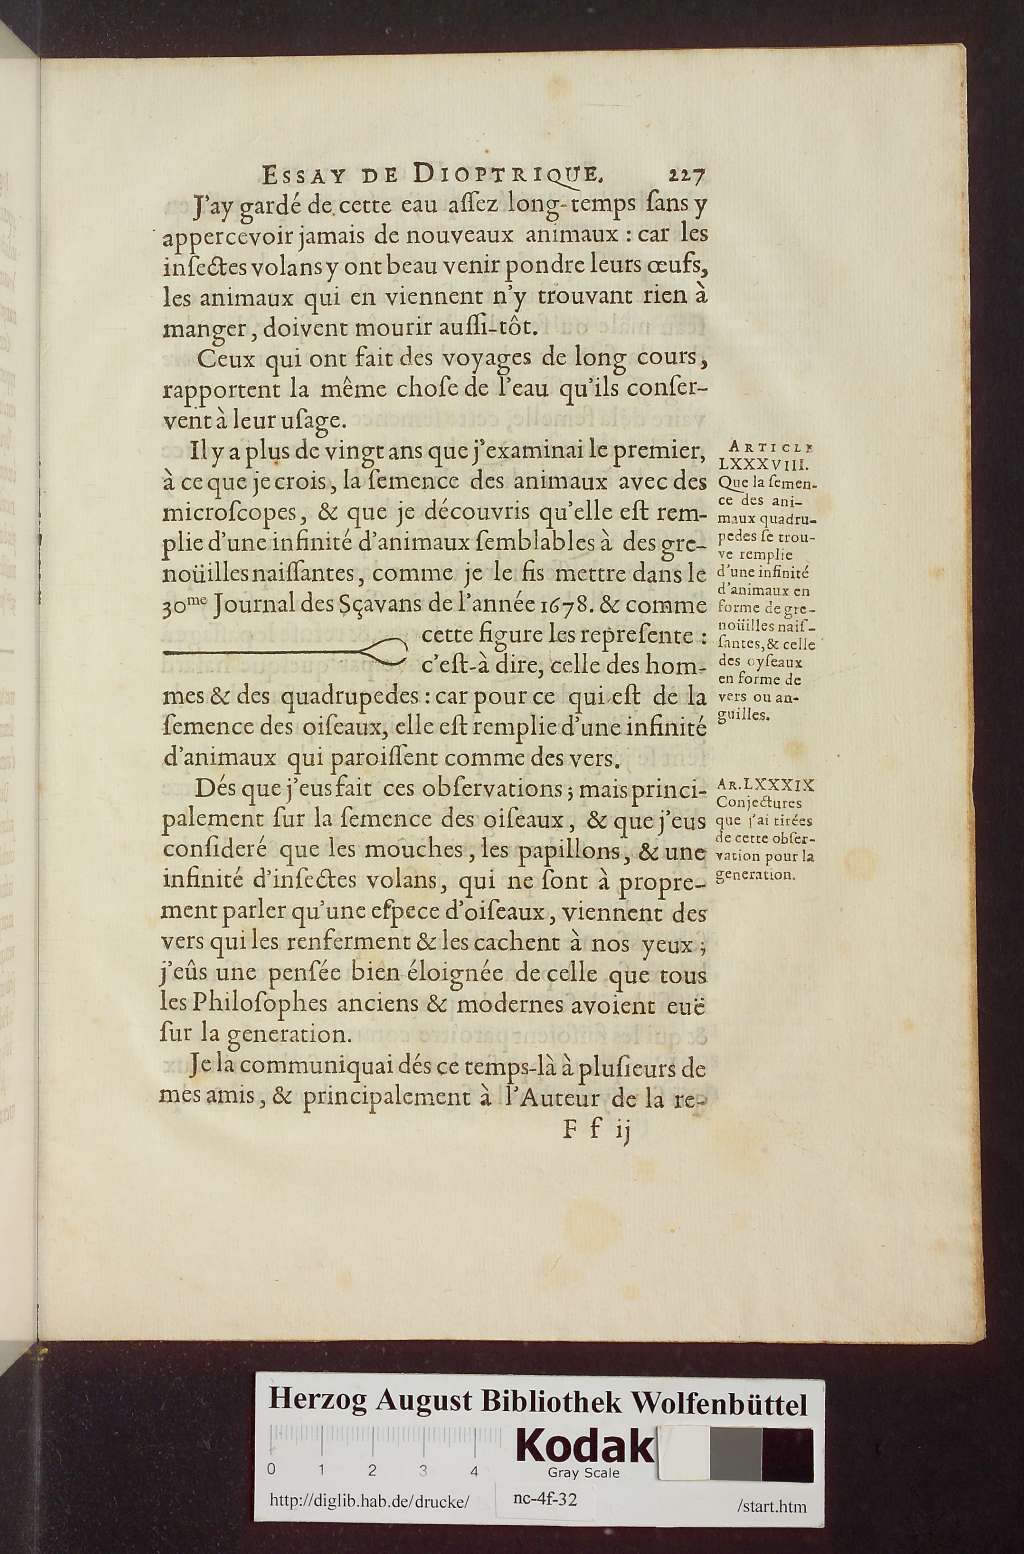 ESSAY DE DIOPTRIQUE. 227
J'ay gardé de cette eau aſſez long-temps ſans y
appercevoir jamais de nouveaux animaux : car les
inſectes volans y ont beau venir pondre leurs œufs,
les animaux qui en viennent n'y trouvant rien à
manger, doivent mourir auſſi-tôt.
Ceux qui ont fait des voyages de long cours,
rapportent la même choſe de l'eau qu'ils conſer-
vent à leur uſage.
Il y a plus de vingt ans que j'examinai le premier,
à ce que je crois, la ſemence des animaux avec des
microſcopes, & que je découvris qu'elle eſt rem-
plie d'une infinité d'animaux ſemblables à des gre-
noüilles naiſſantes, comme je le fis mettre dans le
30me Journal des Sçavans de l'année 1678. & comme
cette figure les repreſente :
c'eſt-à dire, celle des hom-
mes & des quadrupedes : car pour ce qui eſt de la
ſemence des oiſeaux, elle eſt remplie d'une infinité
d'animaux qui paroiſſent comme des vers.
ARTICLE
LXXXVIII.
Que la ſemen-
ce des ani-
maux quadru-
pedes ſe trou-
ve remplie
d'une infinité
d'animaux en
forme de gre-
noüilles naiſ-
ſantes, & celle
des oyſeaux
en forme de
vers ou an-
guilles.
Dés que j'eus fait ces obſervations ; mais princi-
palement ſur la ſemence des oiſeaux, & que j'eus
conſideré que les mouches, les papillons, & une
infinité d'inſectes volans, qui ne ſont à propre-
ment parler qu'une eſpece d'oiſeaux, viennent des
vers qui les renferment & les cachent à nos yeux ;
j'eûs une penſée bien éloignée de celle que tous
les Philoſophes anciens & modernes avoient euë
ſur la generation.
AR. LXXXIX
Conjectures
que j'ai tirées
de cette obſer-
vation pour la
generation.
Je la communiquai dés ce temps-là à pluſieurs de
mes amis, & principalement à l'Auteur de la re-
F f ij
Herzog August Bibliothek Wolfenbüttel
0 1 2 3 4
Kodak
Gray Scale
http://diglib.hab.de/drucke/ nc-4f-32 /start.htm